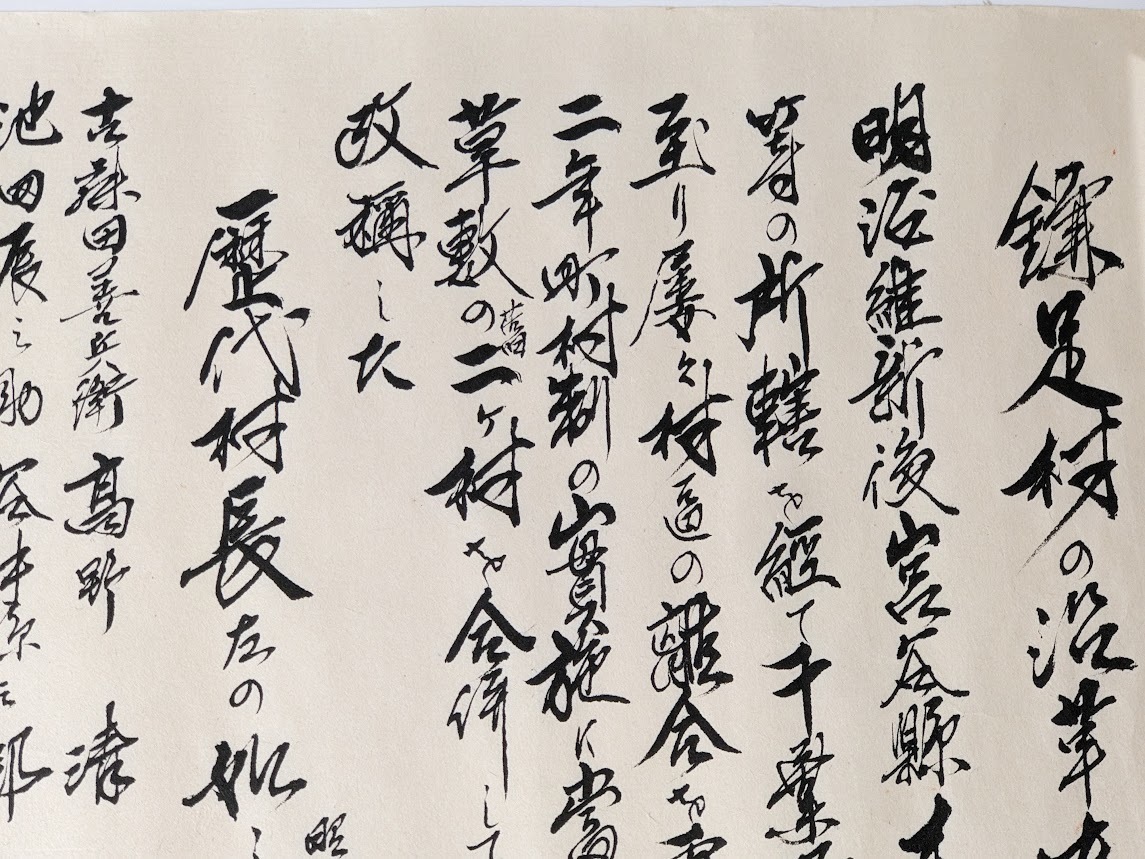 鎌足村の沿革
明治維新後宮谷縣木
等の所轄を經て千葉
至り屡々村區の離合を
二年町村制の實施に當
草敷の舊二ヶ村を合併して
改稱した
歴代村長左の如し
昭
古藤田善兵衛 高野 清
池田辰之助